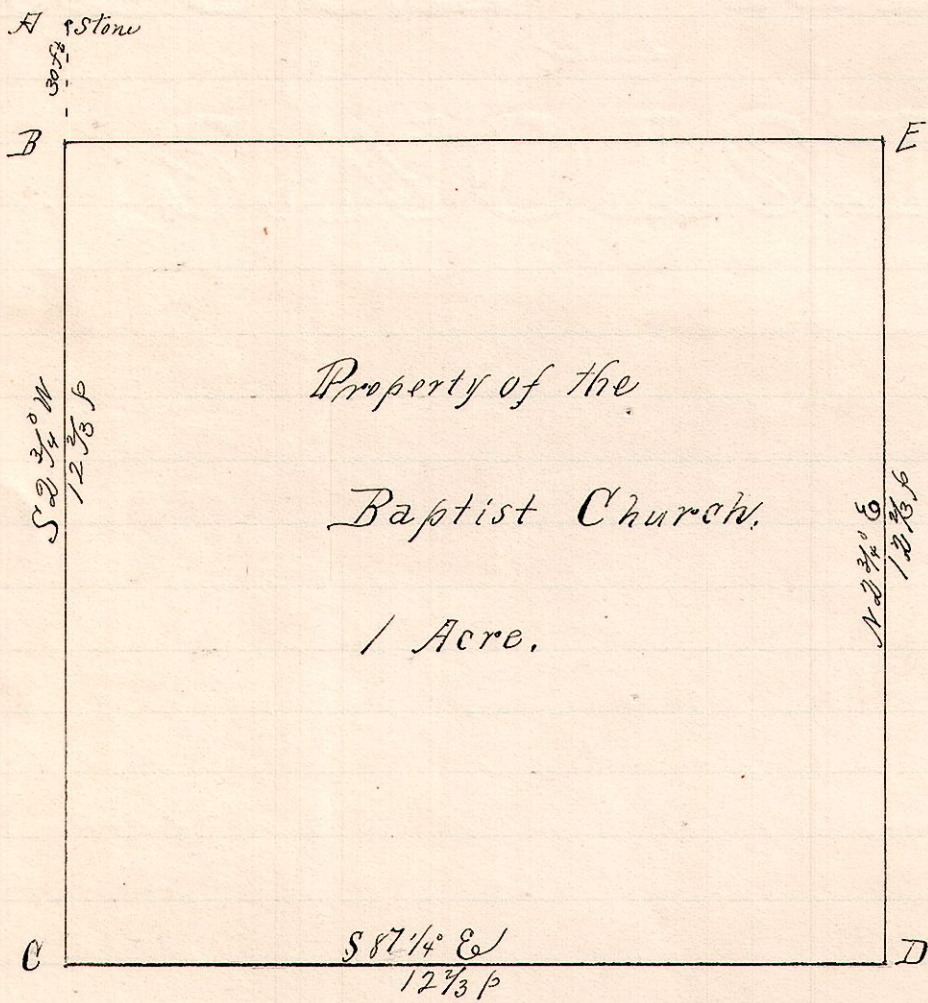 A Stone
30 ft
B
E
S 2 3/4° W
12 2/3 p
Property of the
Baptist Church.
1 Acre.
N 2 3/4° E
12 2/3 p
C
S 87 1/4° E
12 2/3 p
D